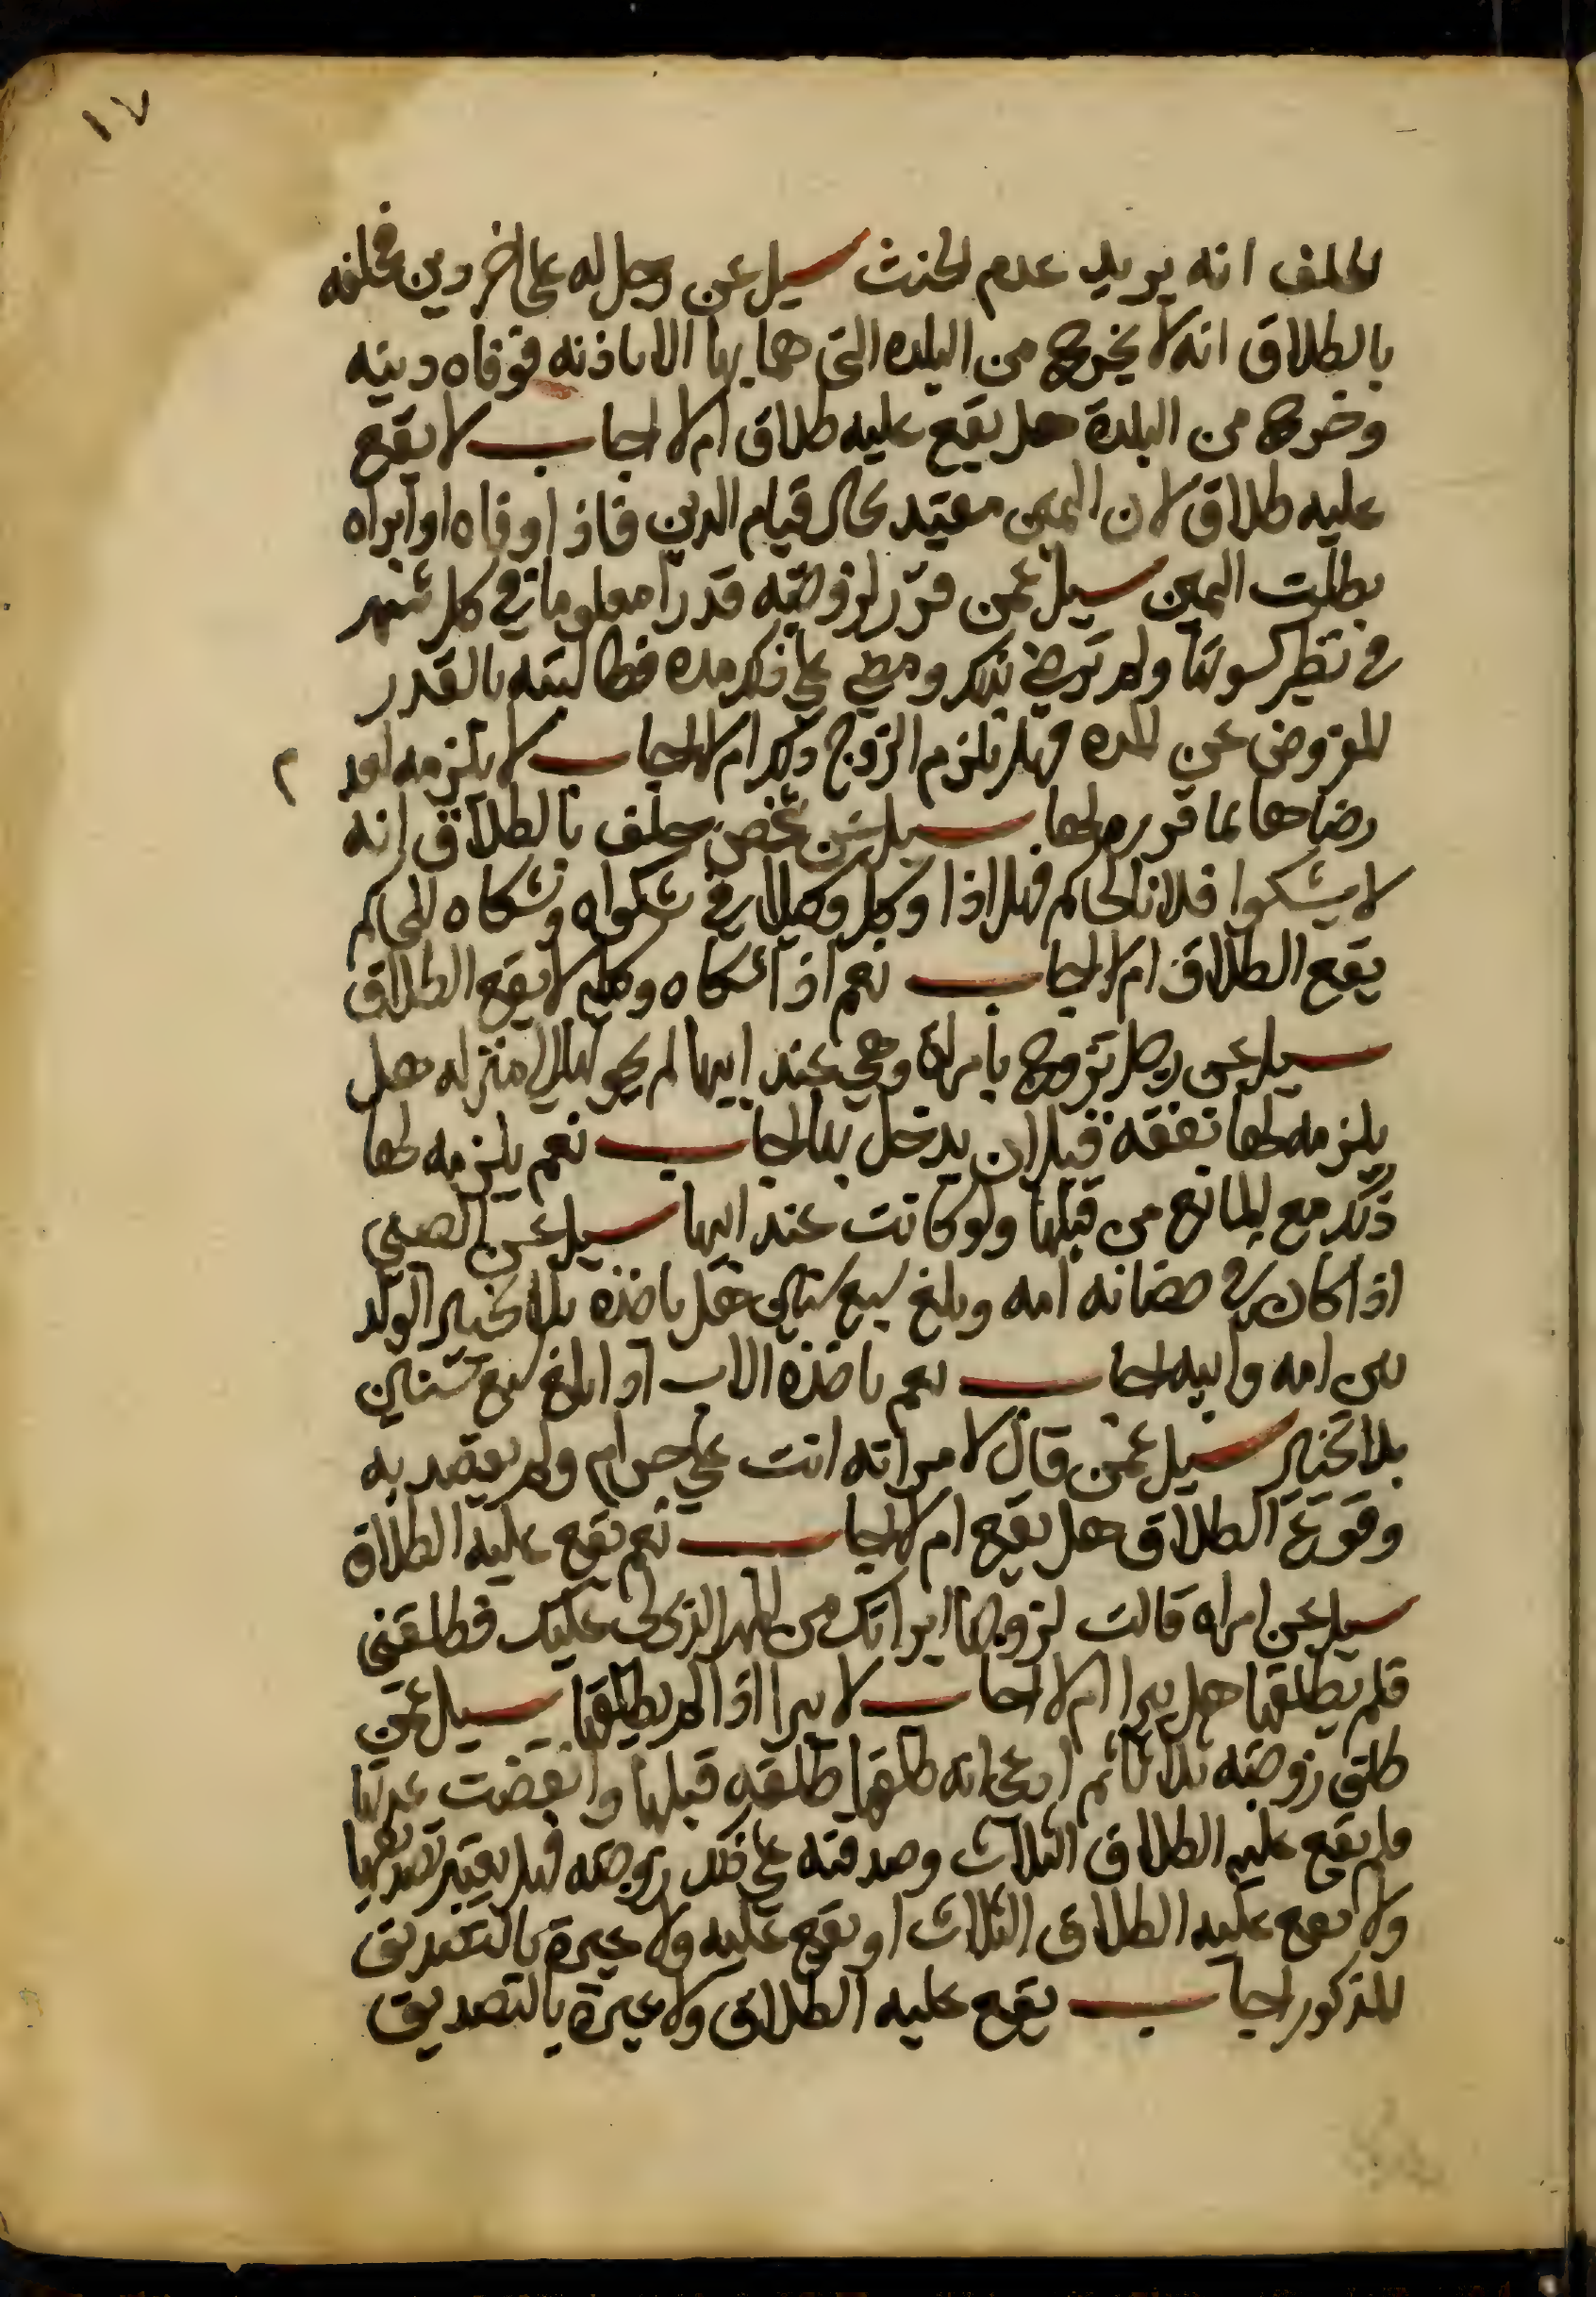 ١٧
الحلف انه يريد عدم الحنث سيل عن رجل له على اخر دين فحلفه
بالطلاق انه لا يخرج من البلده التي هما بها الا باذنه فوفاه دينه
وخرج من البلدة هل يقع عليه طلاق ام لا اجاب لا يقع
عليه طلاق لان اليمين مقيد بحال قيام الدين فاذا وفاه او ابراه
بطلت اليمين سيل عمن قرر لزوجته قدرا معلوما في كل شهر
في نظير كسوتها ولم ترض بذلك ومضي علي ذلك مده فطالبته بالقدر
المفروض عن المده فهل يلزم الزوج ذلك ام لا اجاب لا يلزمه لعد م
رضاها بما قرره لها سيل عن شخص حلف بالطلاق انه
لا يشكوا فلانا لحاكم فهل اذا وكل وكيلا في شكواه وشكاه للحاكم
يقع الطلاق ام لا اجاب نعم اذا شكاه وكيله لا يقع الطلاق
سيل عن رجل تزوج بامراة وهي عند ابيها لم يحولها الى منزله هل
يلزمه لها نفقه قبل ان يدخل بها اجاب نعم يلزمه لها
ذلك مع المانع من قبلها ولو كانت عند ابيها سيل عن الصبي
اذا كان في حضانه امه وبلغ سبع سنين هل ياخذه بلا تخيير الولد
بين امه وابيه اجاب نعم ياخذه الاب اذا بلغ سبع سنين
بلا تخيير سيل عمن قال لامراته انت علي حرام ولم يقصد به
وقوع الطلاق هل يقع ام لا اجاب نعم يقع عليه الطلاق
سيل عن امراه قالت لزوجها ابراتك من المهر الذي لي عليك فطلقني
فلم يطلقها هل يبرا ام لا اجاب لا يبرا اذا لم يطلقها سيل عمن
طلق زوجته ثلاثا ثم ادعى انه طلقها طلقه قبلها وانقضت عدتها
ولم يقع عليه الطلاق الثلاث وصدقته علي ذلك زوجته فهل يعتبر تصديقها
ولا يقع عليه الطلاق الثلاث او يقع عليه ولا عبرة بالتصديق
المذكور اجاب يقع عليه الطلاق ولا عبرة بالتصديق